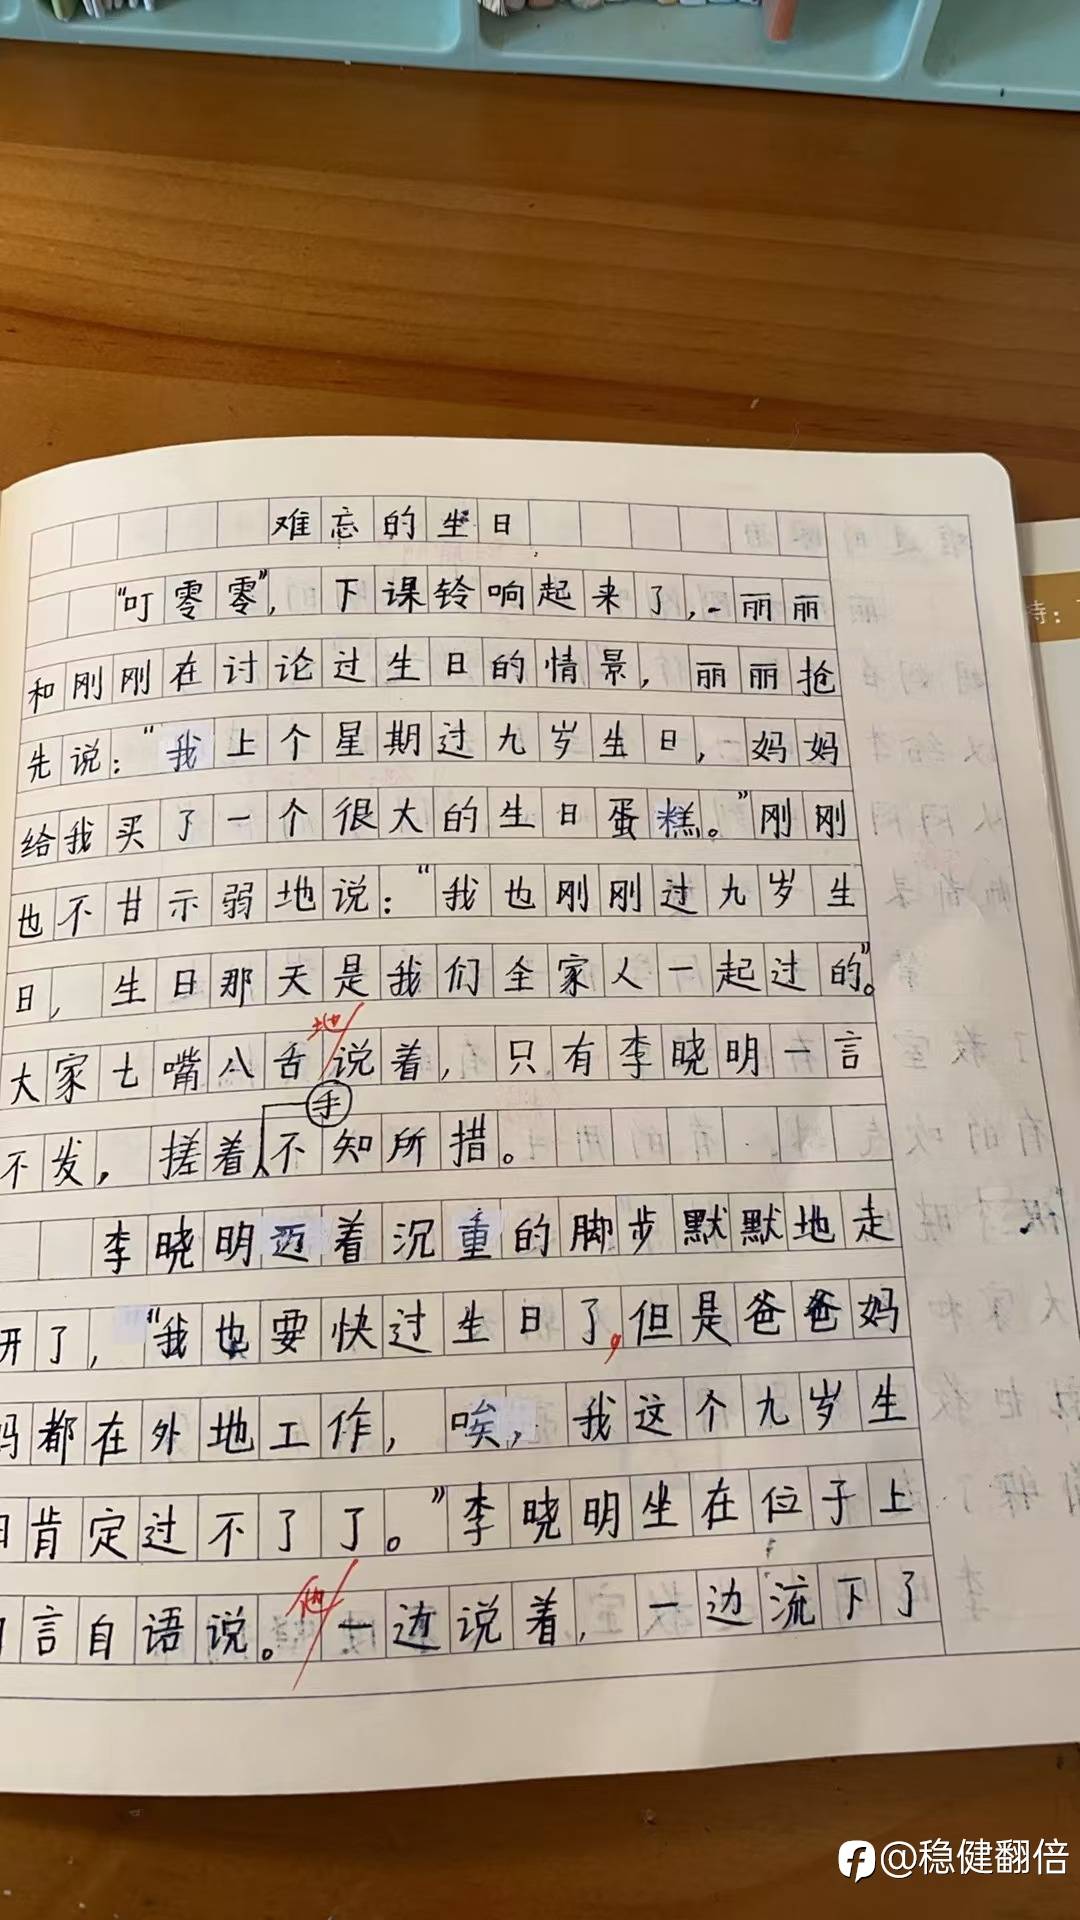 难忘的生日
“叮零零”，下课铃响起来了，丽丽
和刚刚在讨论过生日的情景，丽丽抢
先说：“我上个星期过九岁生日，妈妈
给我买了一个很大的生日蛋糕。”刚刚
也不甘示弱地说：“我也刚刚过九岁生
日，生日那天是我们全家人一起过的”。
地
大家七嘴八舌说着，只有李晓明一言
手
不发，搓着不知所措。
李晓明迈着沉重的脚步默默地走
开了，“我也要快过生日了，但是爸爸妈
妈都在外地工作，唉，我这个九岁生
日肯定过不了了。”李晓明坐在位子上
他
言自语说。一边说着，一边流下了
@稳健翻倍